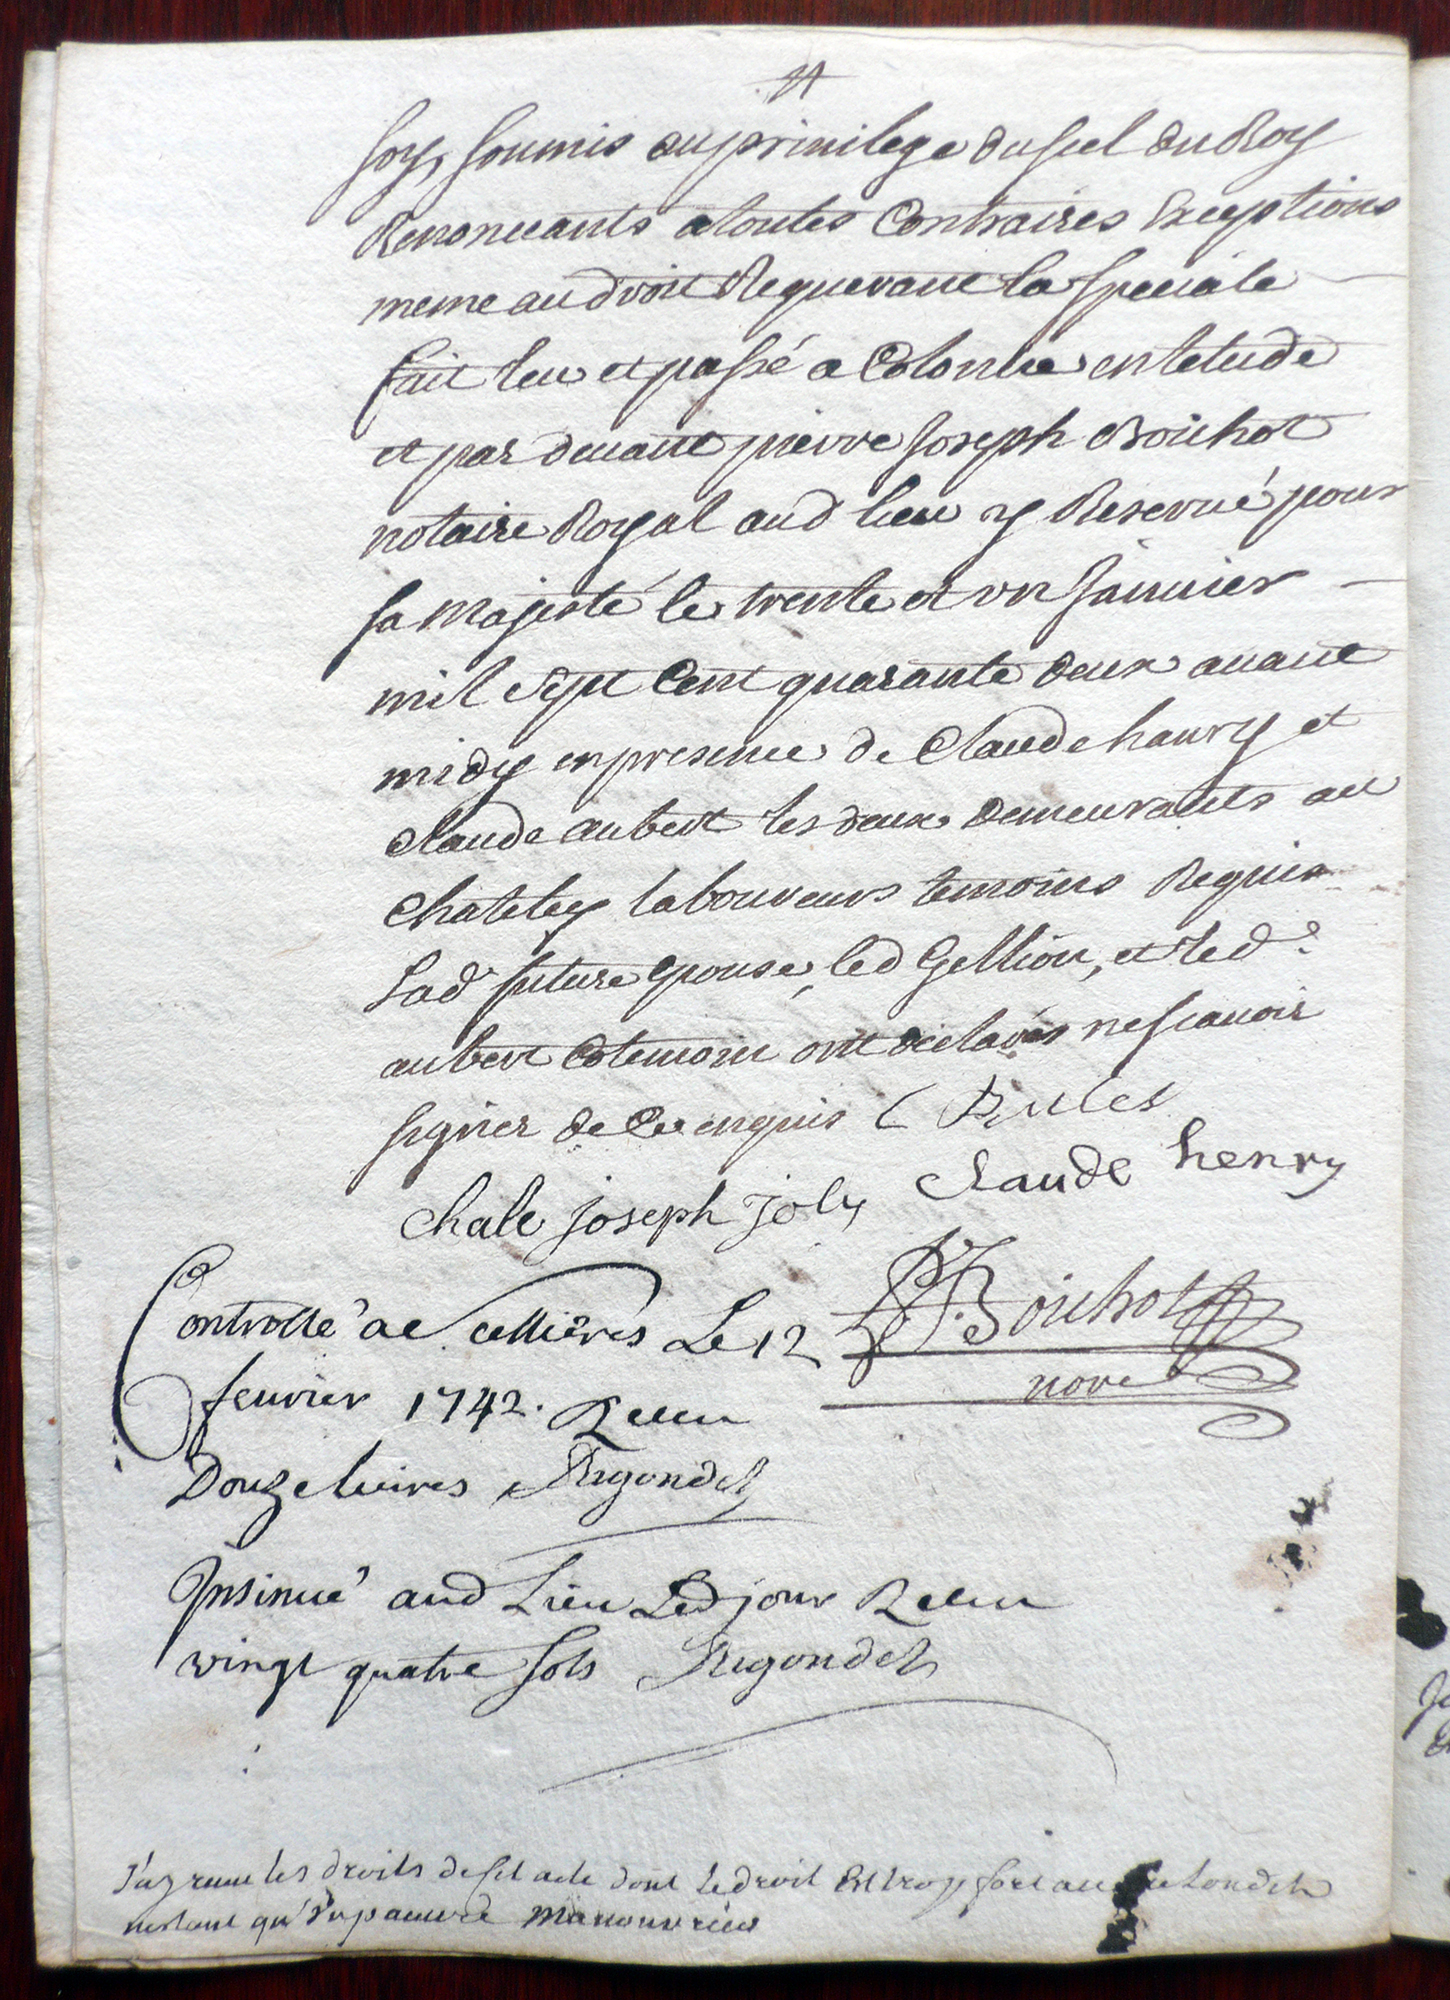 soy, soumis au privilege du scel du Roy
Renoncants a toutes Contraires Exceptions
meme au droit Requerant la speciale
fait leu et passé a Colonne en letude
et par devant pierre Joseph Boichot
notaire Royal aud lieu y Reservé pour
sa majesté le trente et un Janvier
mil sept Cent quarante deux avant
midy en presence de Claude hanry et
Claude aubert les deux demeurants au
Chateley laboureurs temoins Requis
Lad future epouse, led Gellion, et led.
aubert Cotemoin ont déclarés ne scavoir
signer de Ce enquis
Chale joseph joly Claude henry
PJ Boichot
nore
Controllé a Sellières Le 12
fevrier 1742. Receu
Douze livres Rigondet
Insinué aud Lieu Led jour Receu
vingt quatre sols Rigondet
J'ay receu les droits de set acte dont le droit Est trop fort
nestant qu'un pauvre manouvrier